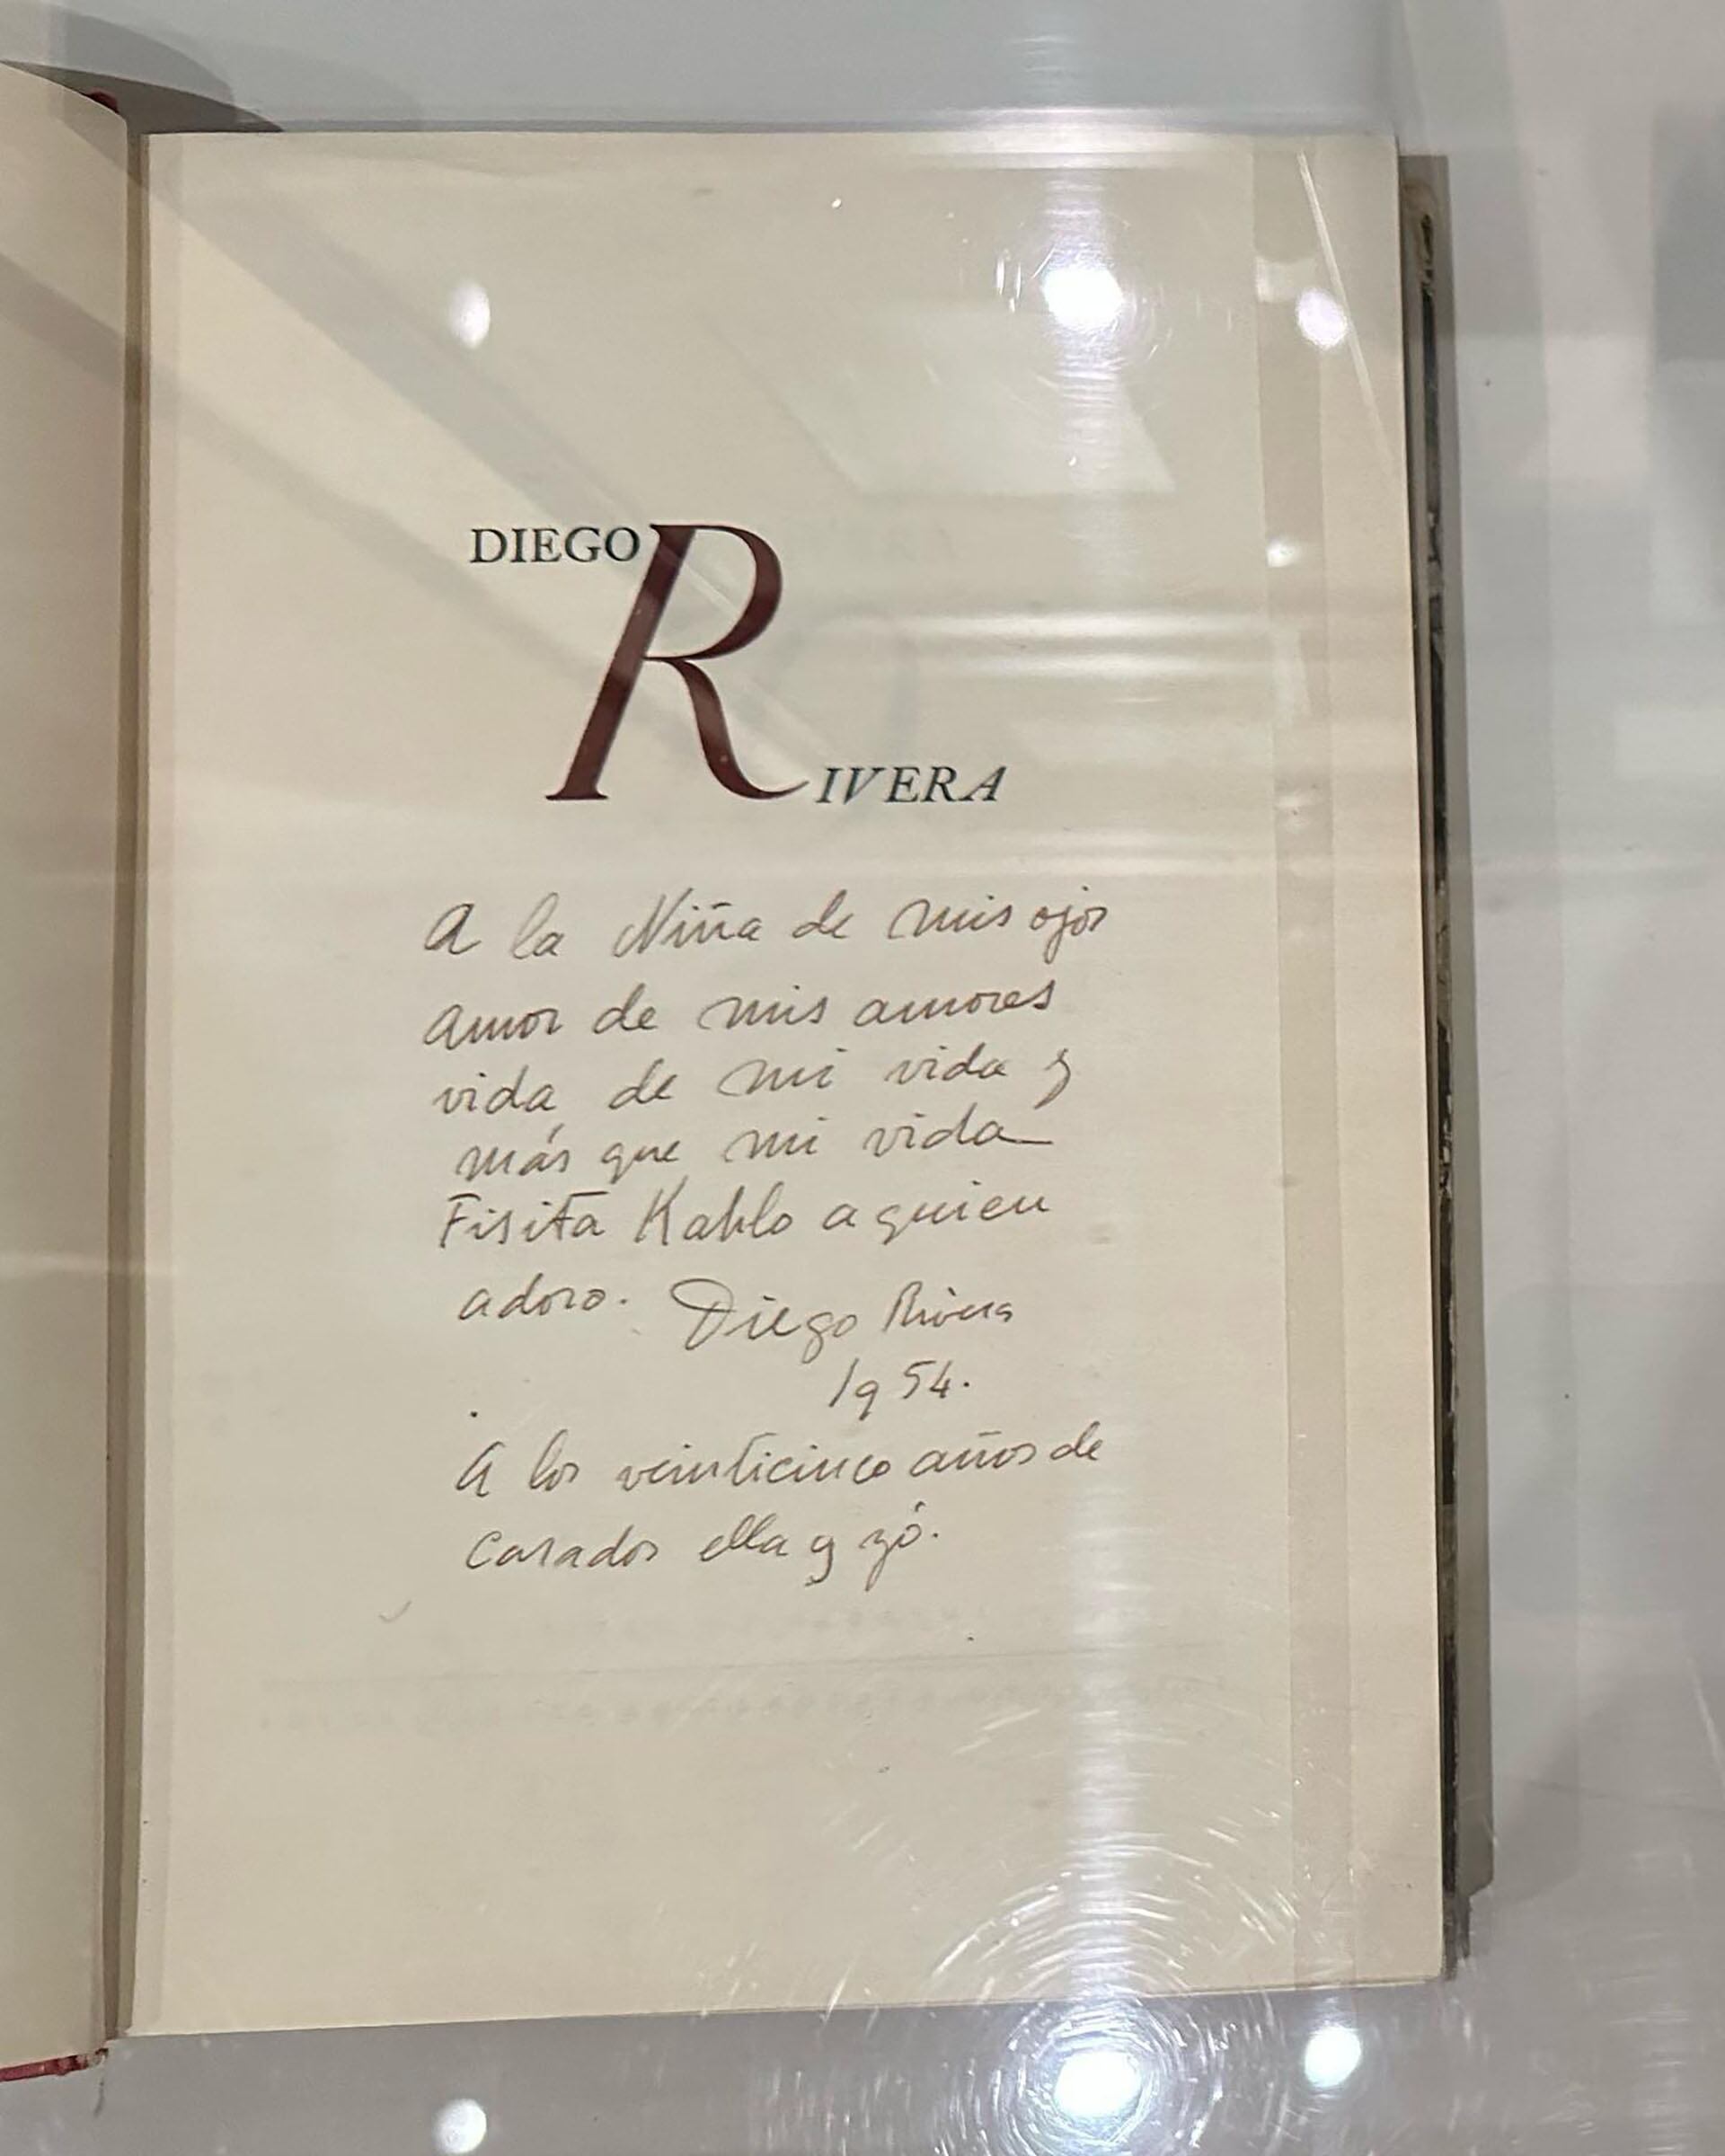 DIEGO
RIVERA
A la Niña de mis ojos
amor de mis amores
vida de mi vida y
más que mi vida
Fisita Kahlo a quien
adoro. Diego Rivera
1954.
A los veinticinco años de
casados ella y yó.